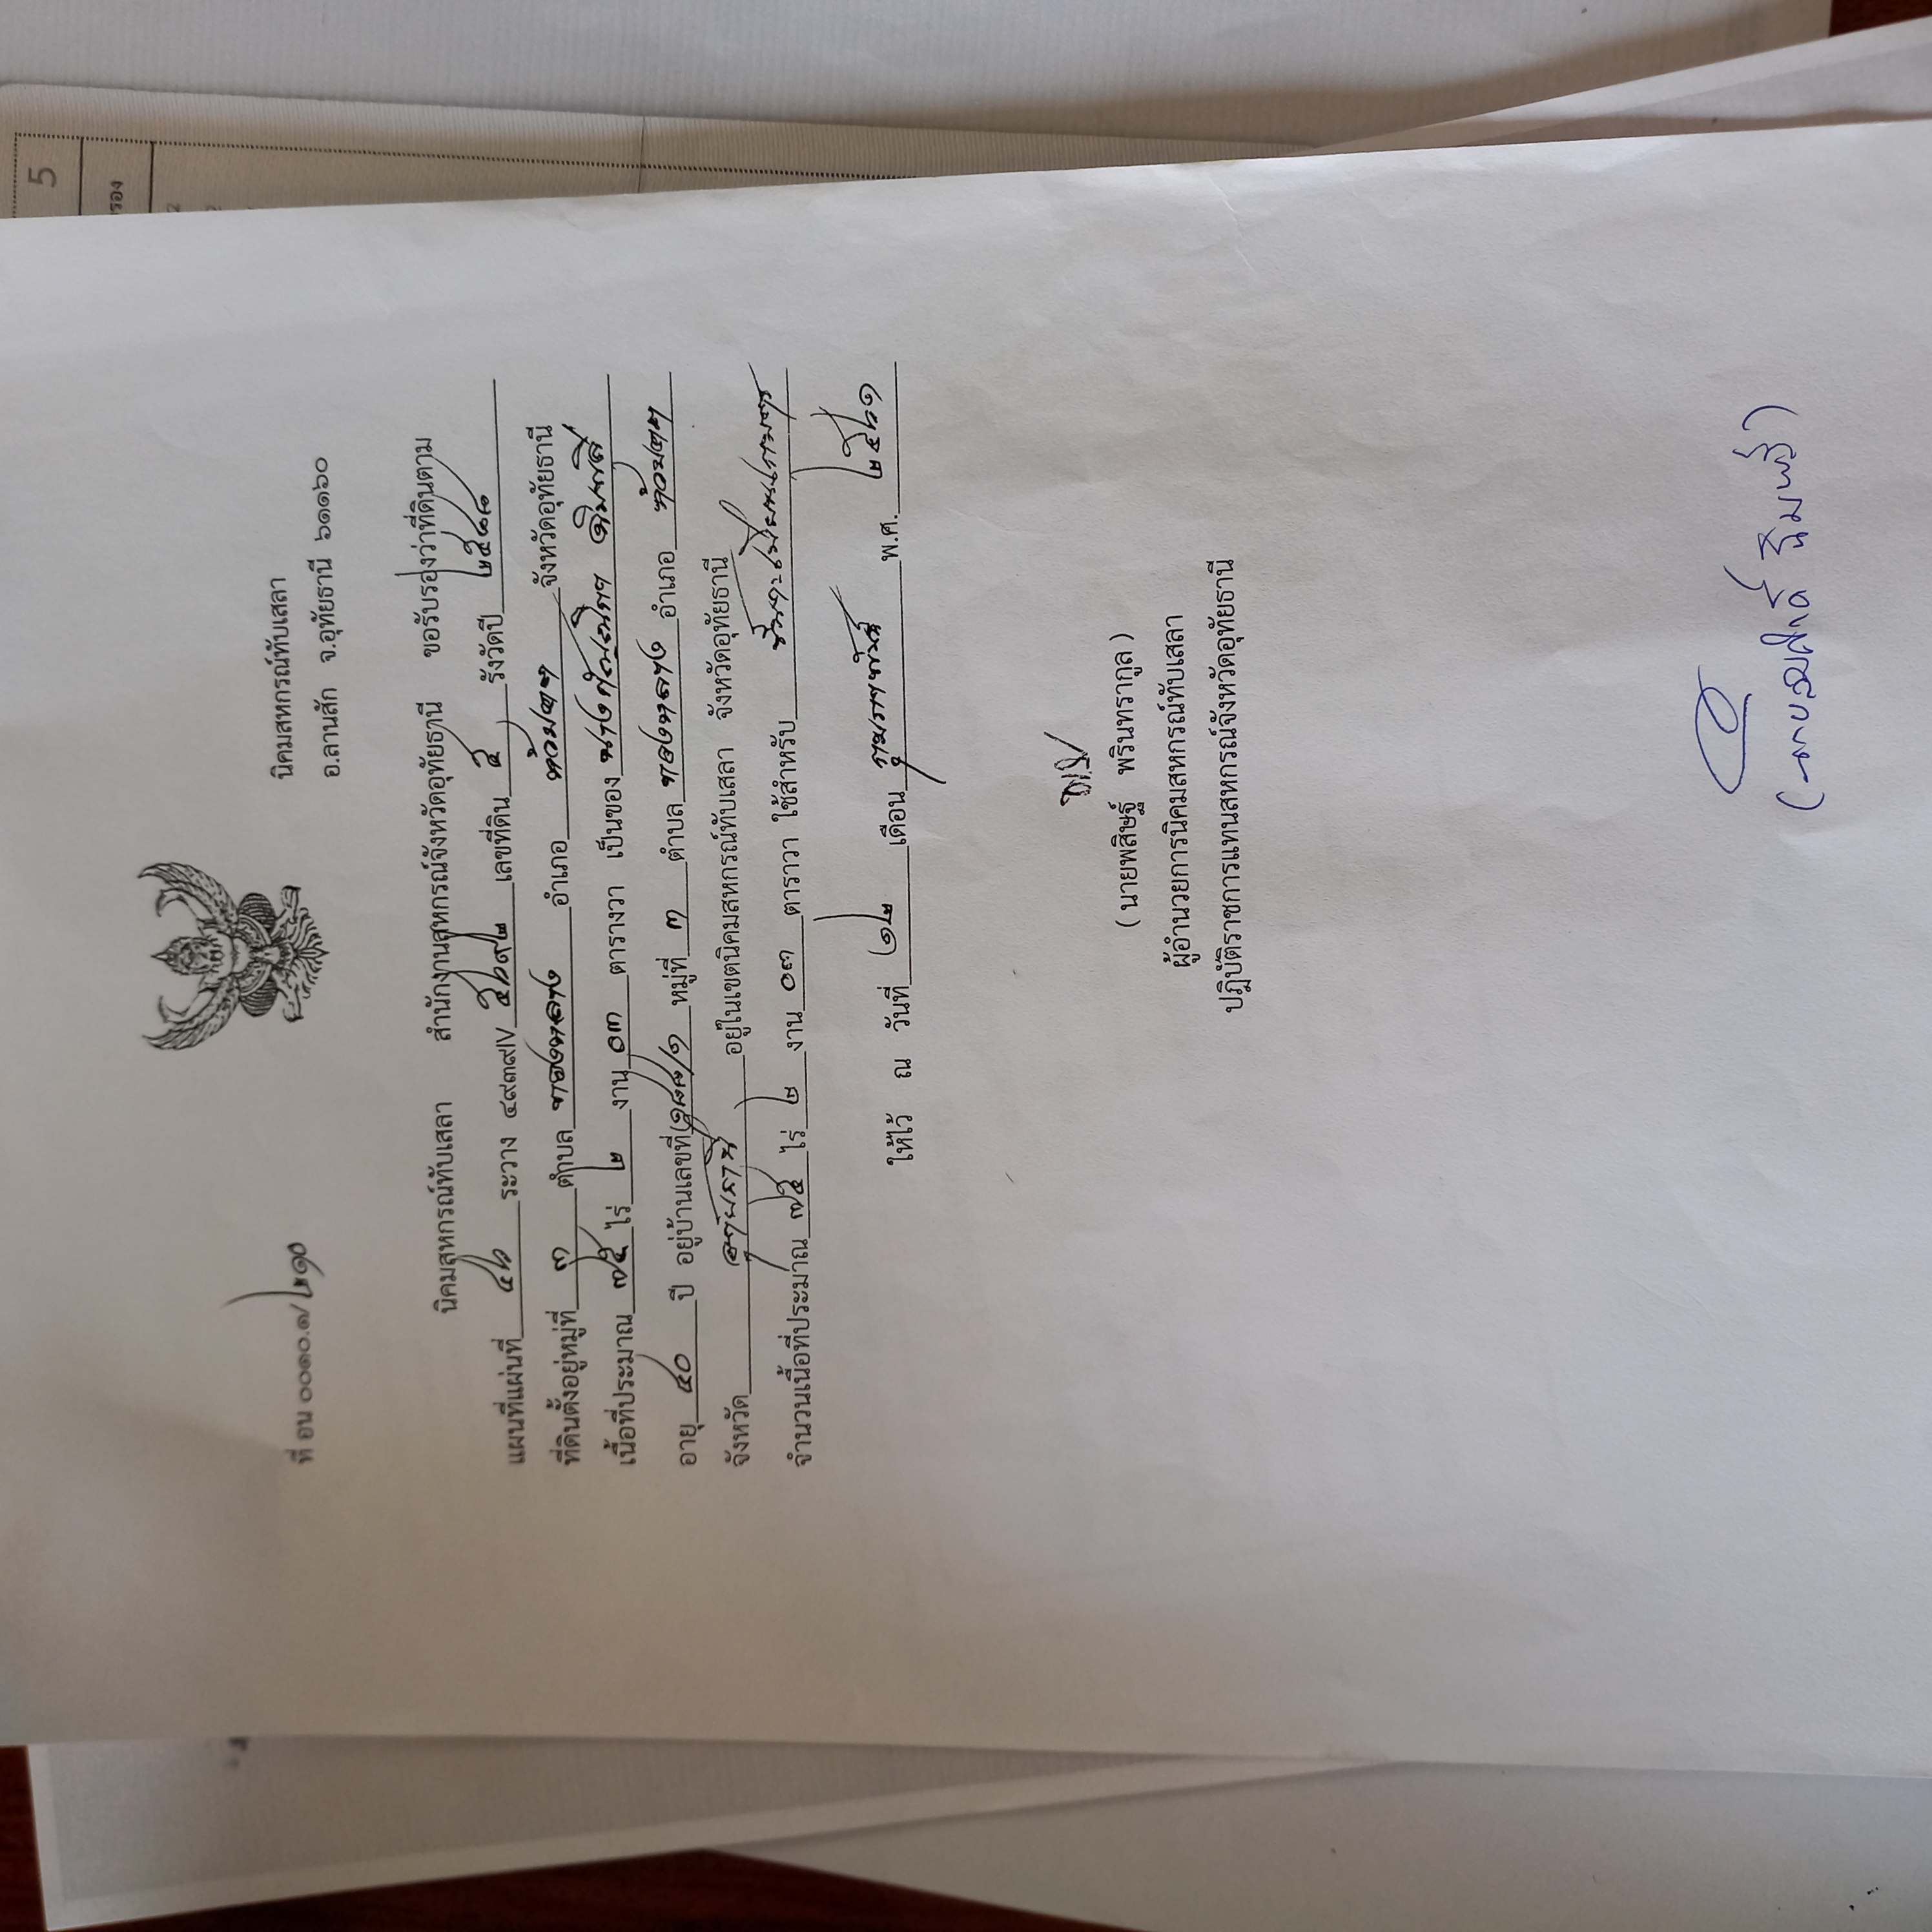 ที่ อน ๐๐๑๐.๗/๒๑๐
นิคมสหกรณ์ทับเสลา
อ.ลานสัก จ.อุทัยธานี ๖๑๑๖๐
นิคมสหกรณ์ทับเสลา สำนักงานสหกรณ์จังหวัดอุทัยธานี ขอรับรองว่าที่ดินตาม
แผนที่แผ่นที่ ระวาง ๔๙๓๙IV เลขที่ดิน ๕ รังวัดปี
ที่ดินตั้งอยู่หมู่ที่ ๓ ตำบล อำเภอ ห้วยคต จังหวัดอุทัยธานี
เนื้อที่ประมาณ ๓๕ ไร่ ๒ งาน ๐๓ ตารางวา เป็นของ
อายุ ๕๐ ปี อยู่บ้านเลขที่ หมู่ที่ ๓ ตำบล อำเภอ ห้วยคต
จังหวัด อุทัยธานี อยู่ในเขตนิคมสหกรณ์ทับเสลา จังหวัดอุทัยธานี
จำนวนเนื้อที่ประมาณ ๓๕ ไร่ ๒ งาน ๐๓ ตาราวา ใช้สำหรับ
ให้ไว้ ณ วันที่ ๑๒ เดือน กุมภาพันธ์ พ.ศ. ๒๕๖๑
( นายพสิษฐ์ พรินทรากูล )
ผู้อำนวยการนิคมสหกรณ์ทับเสลา
ปฏิบัติราชการแทนสหกรณ์จังหวัดอุทัยธานี
5
รอง